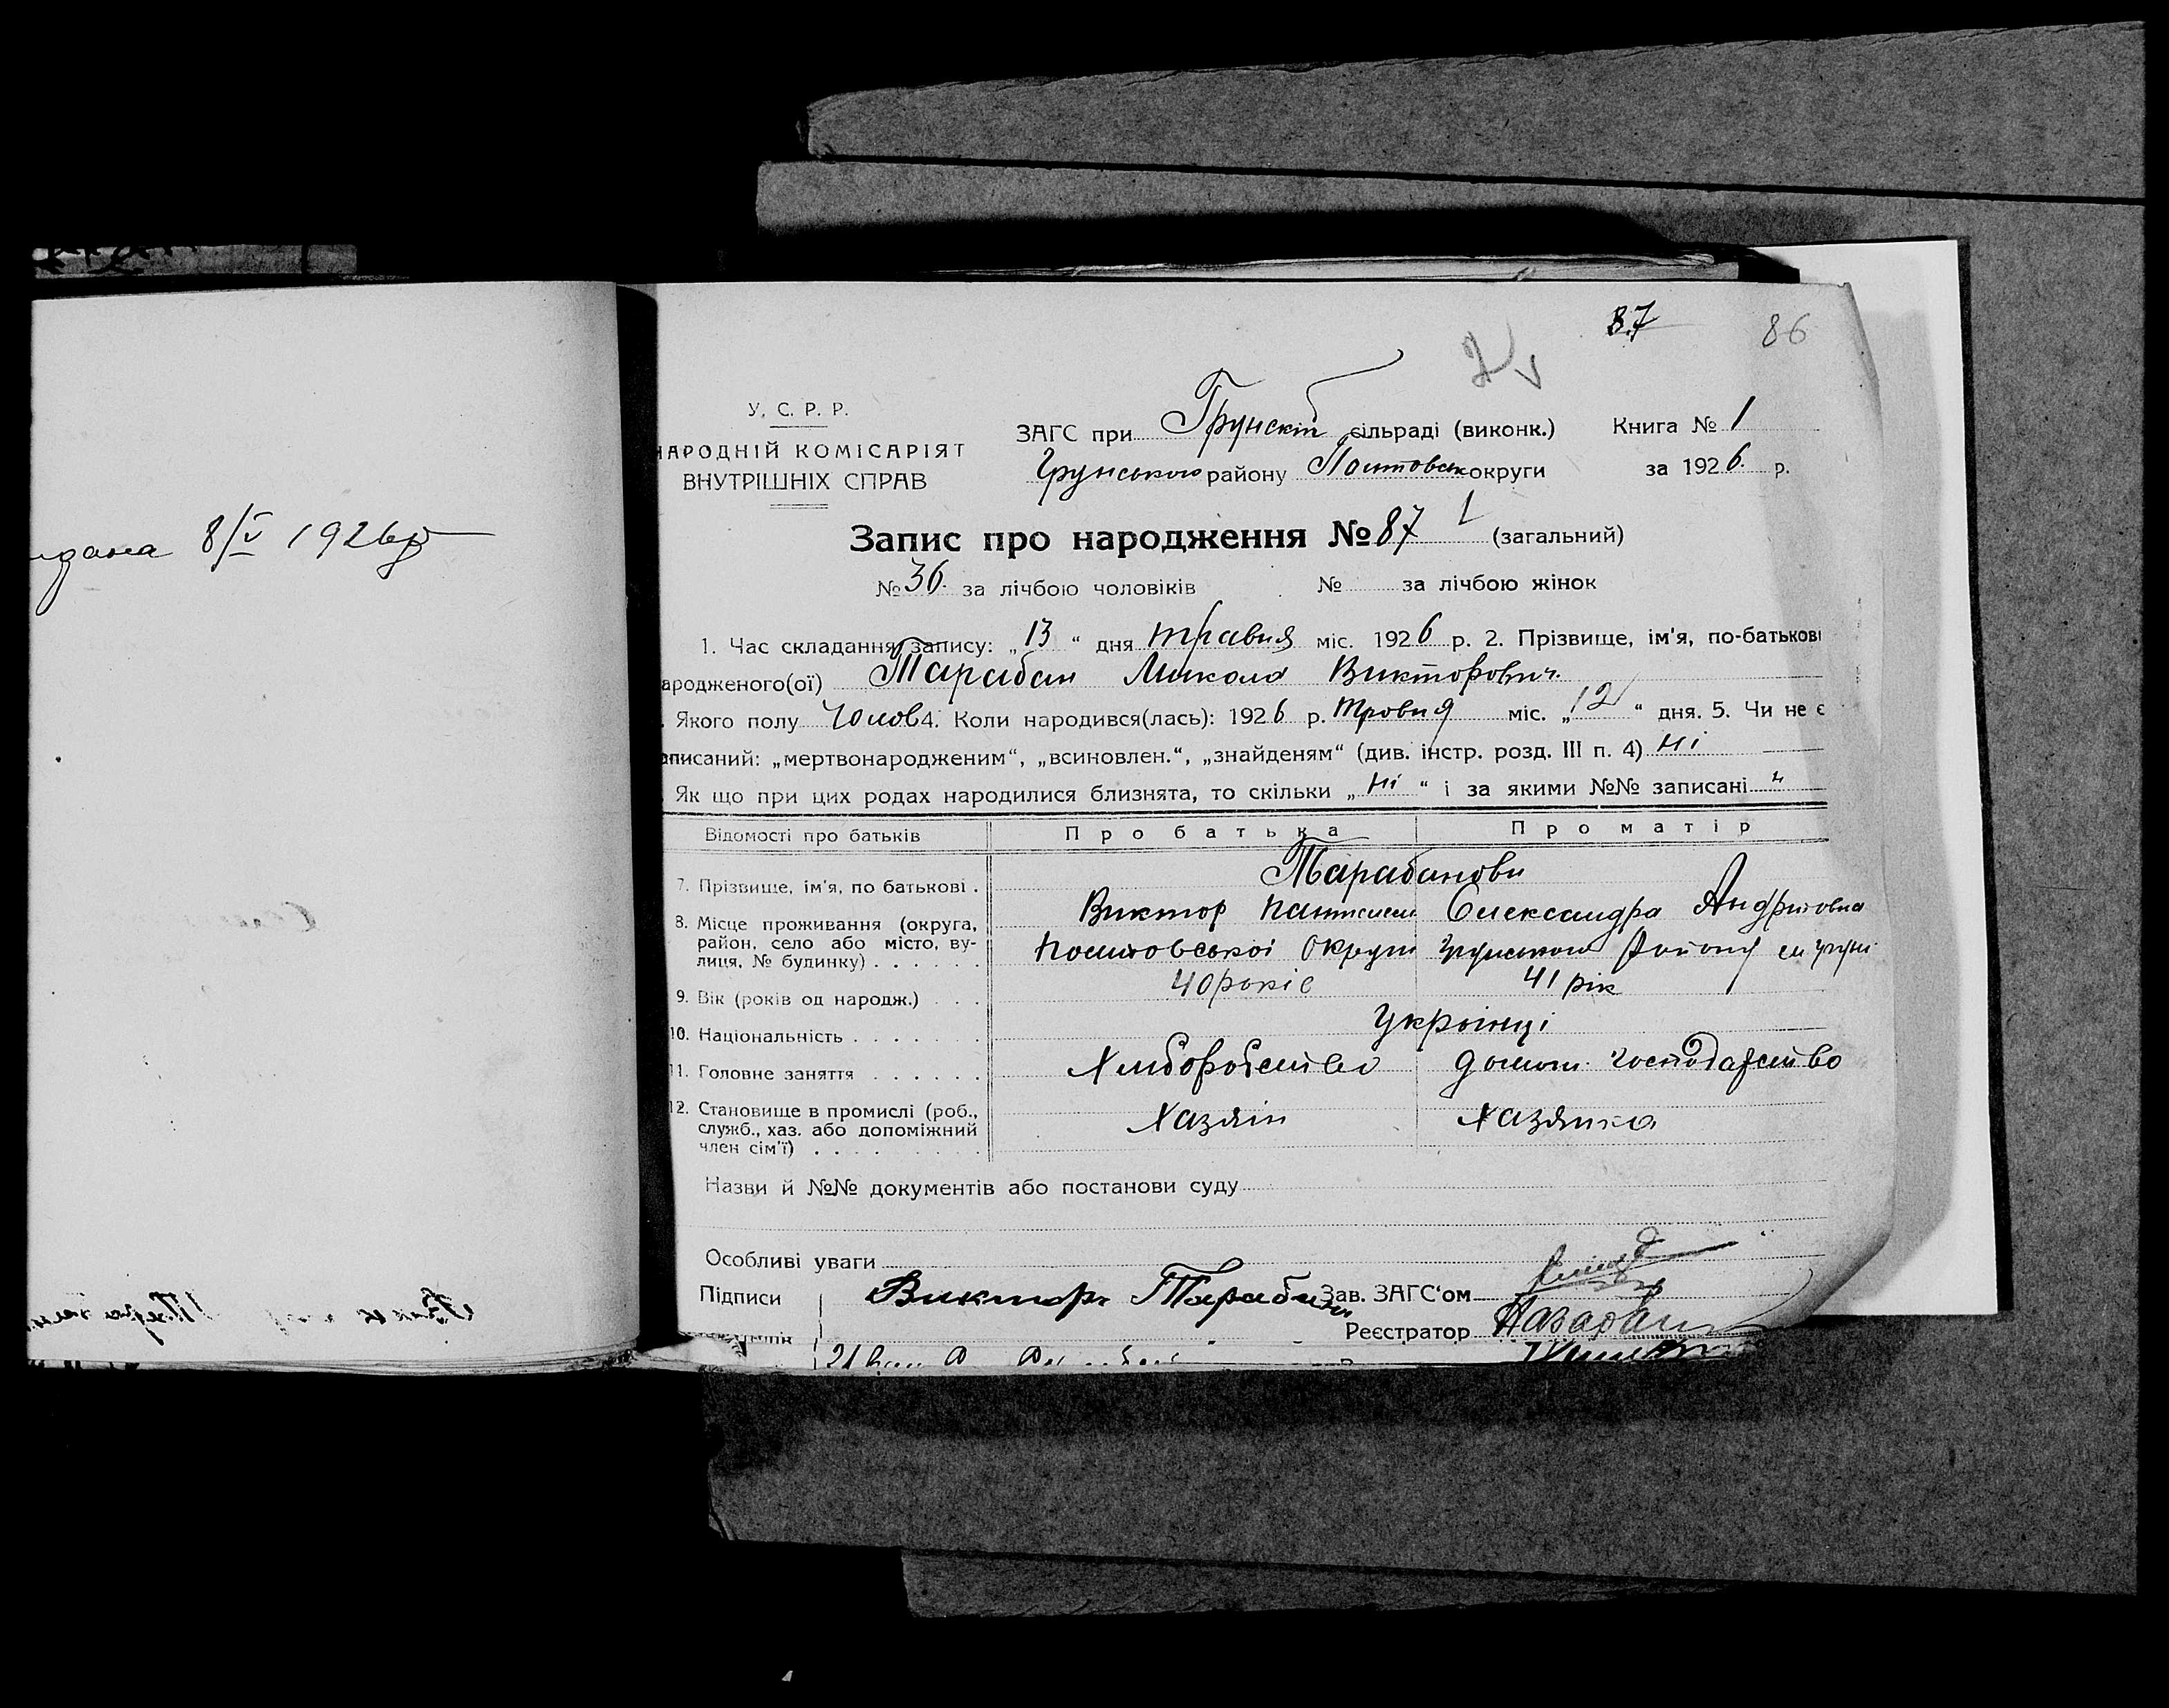 8/V 1926 р
87 86
У. С. Р. Р.
НАРОДНІЙ КОМІСАРІЯТ
ВНУТРІШНІХ СПРАВ
ЗАГС при Грунскій сільраді (виконк.) Книга № 1
Грунського району округи за 1926 р.
Запис про народження № 87 (загальний)
№ 36 за лічбою чоловіків № за лічбою жінок
1. Час складання запису: „13“ дня травня міс. 1926 р. 2. Прізвище, ім'я, по-батькові
ародженого(ої) Тарабан Микола Викторович
Якого полу Чолов 4. Коли народився(лась): 1926 р. травня міс. „12“ дня. 5. Чи не є
аписаний: „мертвонародженим“, „всиновлен.“, „знайденям“ (див. інстр. розд. III п. 4) Ні
Як що при цих родах народилися близнята, то скільки „Ні“ і за якими №№ записані "
Відомості про батьків Про батька Про матір
Тарабанови
7. Прізвище, ім'я, по батькові . Виктор Олександра Андріовна
8. Місце проживання (округа,
район, село або місто, ву-
лиця, № будинку) . . . . . . Округи району
9. Вік (років од народж.) . . . 40 років 41 рік
10. Національність . . . . . . . Українці
11. Головне заняття . . . . . . Хліборобство господарство
12. Становище в промислі (роб.,
служб., хаз. або допоміжний
член сім'ї) . . . . . . . . . Хазяін Хазяйка
Назви й №№ документів або постанови суду
Особливі уваги
Підписи Викторъ Тарабан Зав. ЗАГС'ом
Реєстратор